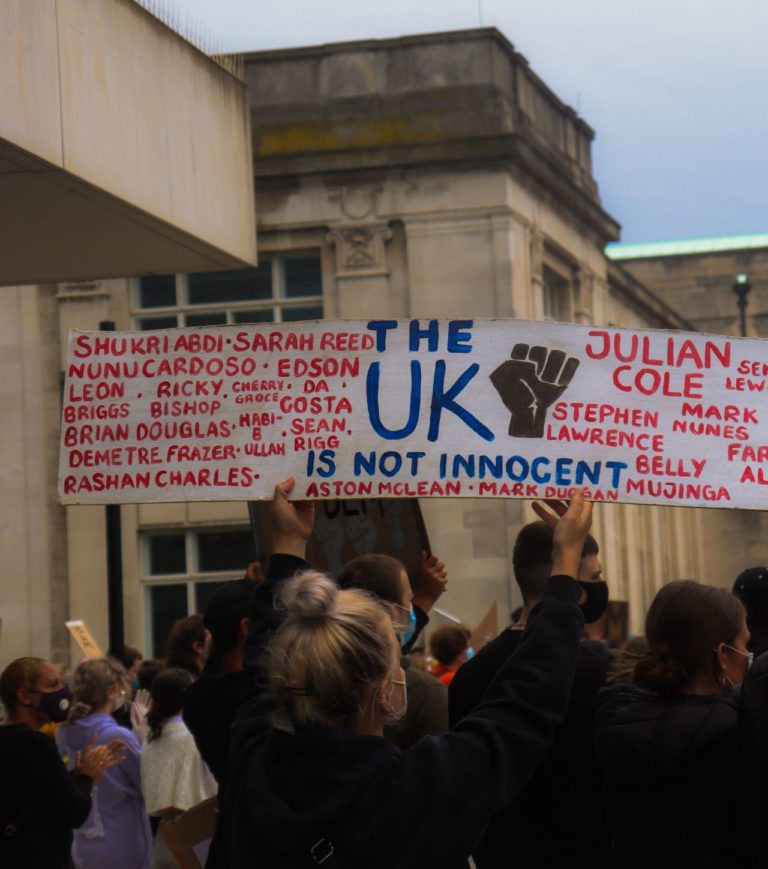 SHUKRI ABDI · SARAH REED
NUNU CARDOSO · EDSON
LEON · RICKY · CHERRY · DA ·
BRIGGS BISHOP GROCE COSTA
BRIAN DOUGLAS · HABI- · SEAN.
B · ULLAH RIGG
DEMETRE FRAZER ·
RASHAN CHARLES ·
THE
UK
IS NOT INNOCENT
ASTON MCLEAN · MARK DUGGAN
JULIAN
COLE
STEPHEN
LAWRENCE
MARK
NUNES
BELLY
MUJINGA
BLM